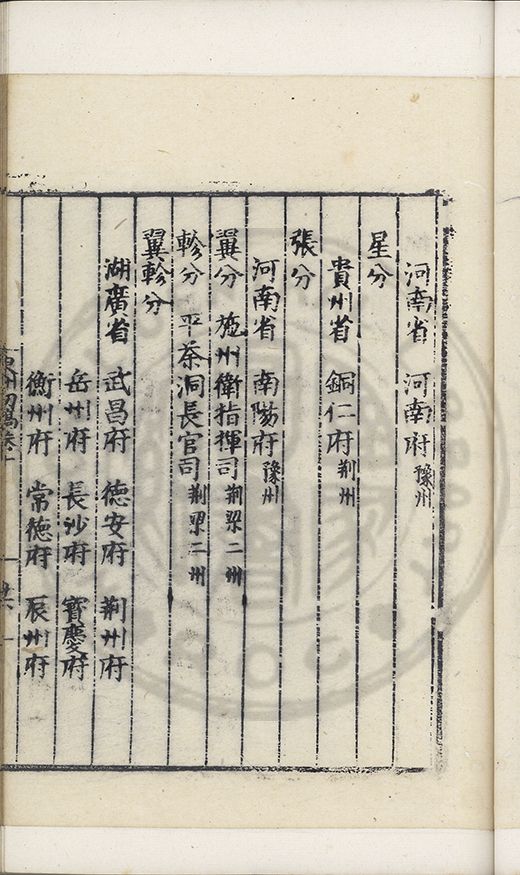 河南省 河南府 豫州
星分
貴州省 銅仁府 荆州
張分
河南省 南陽府 豫州
翼分 施州衛指揮司 荆梁二州
軫分 平茶洞長官司 荆梁二州
翼軫分
湖廣省 武昌府 德安府 荆州府
岳州府 長沙府 寶慶府
衡州府 常德府 辰州府